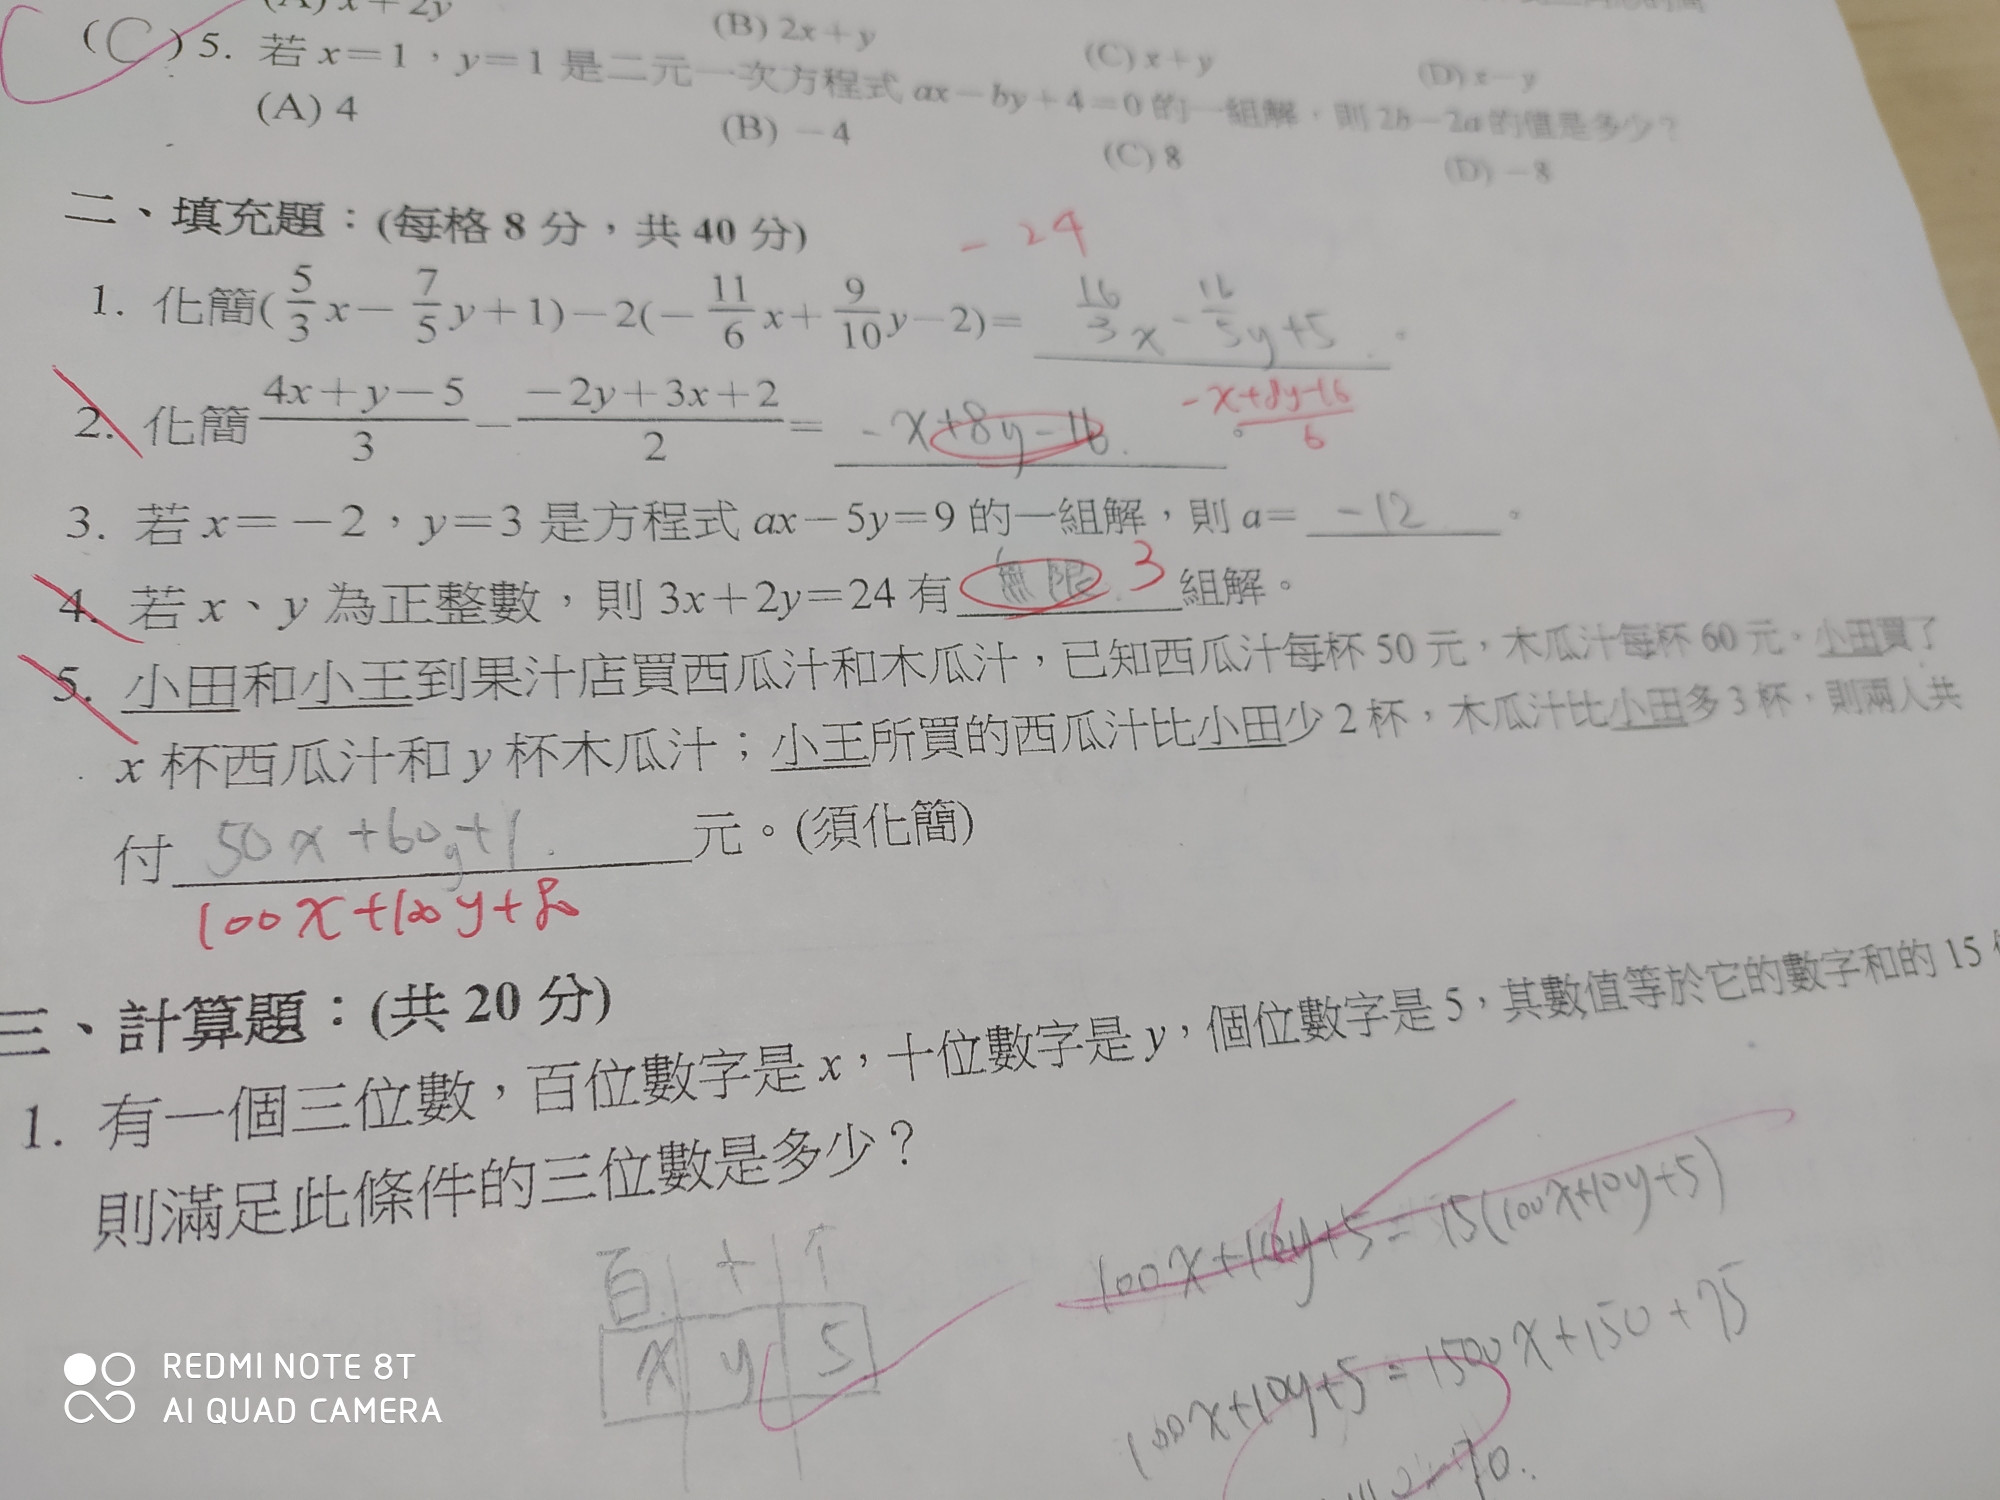 (A) x+2y (B) 2x+y (C) x+y (D) x-y
(C) 5. 若 x=1，y=1 是二元一次方程式 ax-by+4=0 的一組解，則 2b-2a 的值是多少？
(A) 4 (B) -4 (C) 8 (D) -8
二、填充題：(每格 8 分，共 40 分)
-24
1. 化簡(5/3 x - 7/5 y+1)-2(- 11/6 x+ 9/10 y-2)= 16/3 x - 16/5 y+5。
2. 化簡 (4x+y-5)/3 - (-2y+3x+2)/2 = -x+8y-16. (-x+8y-16)/6
3. 若 x=-2，y=3 是方程式 ax-5y=9 的一組解，則 a= -12。
4. 若 x、y 為正整數，則 3x+2y=24 有 無限 3 組解。
5. 小田和小王到果汁店買西瓜汁和木瓜汁，已知西瓜汁每杯 50 元，木瓜汁每杯 60 元。小田買了
x 杯西瓜汁和 y 杯木瓜汁；小王所買的西瓜汁比小田少 2 杯，木瓜汁比小田多 3 杯，則兩人共
付 50x+60y+1. 元。(須化簡)
三、計算題：(共 20 分)
1. 有一個三位數，百位數字是 x，十位數字是 y，個位數字是 5，其數值等於它的數字和的 15
則滿足此條件的三位數是多少？
百 十 个
x y 5
100x+10y+5=15(100x+10y+5)
100x+10y+5=1500x+150+75
REDMI NOTE 8T
AI QUAD CAMERA